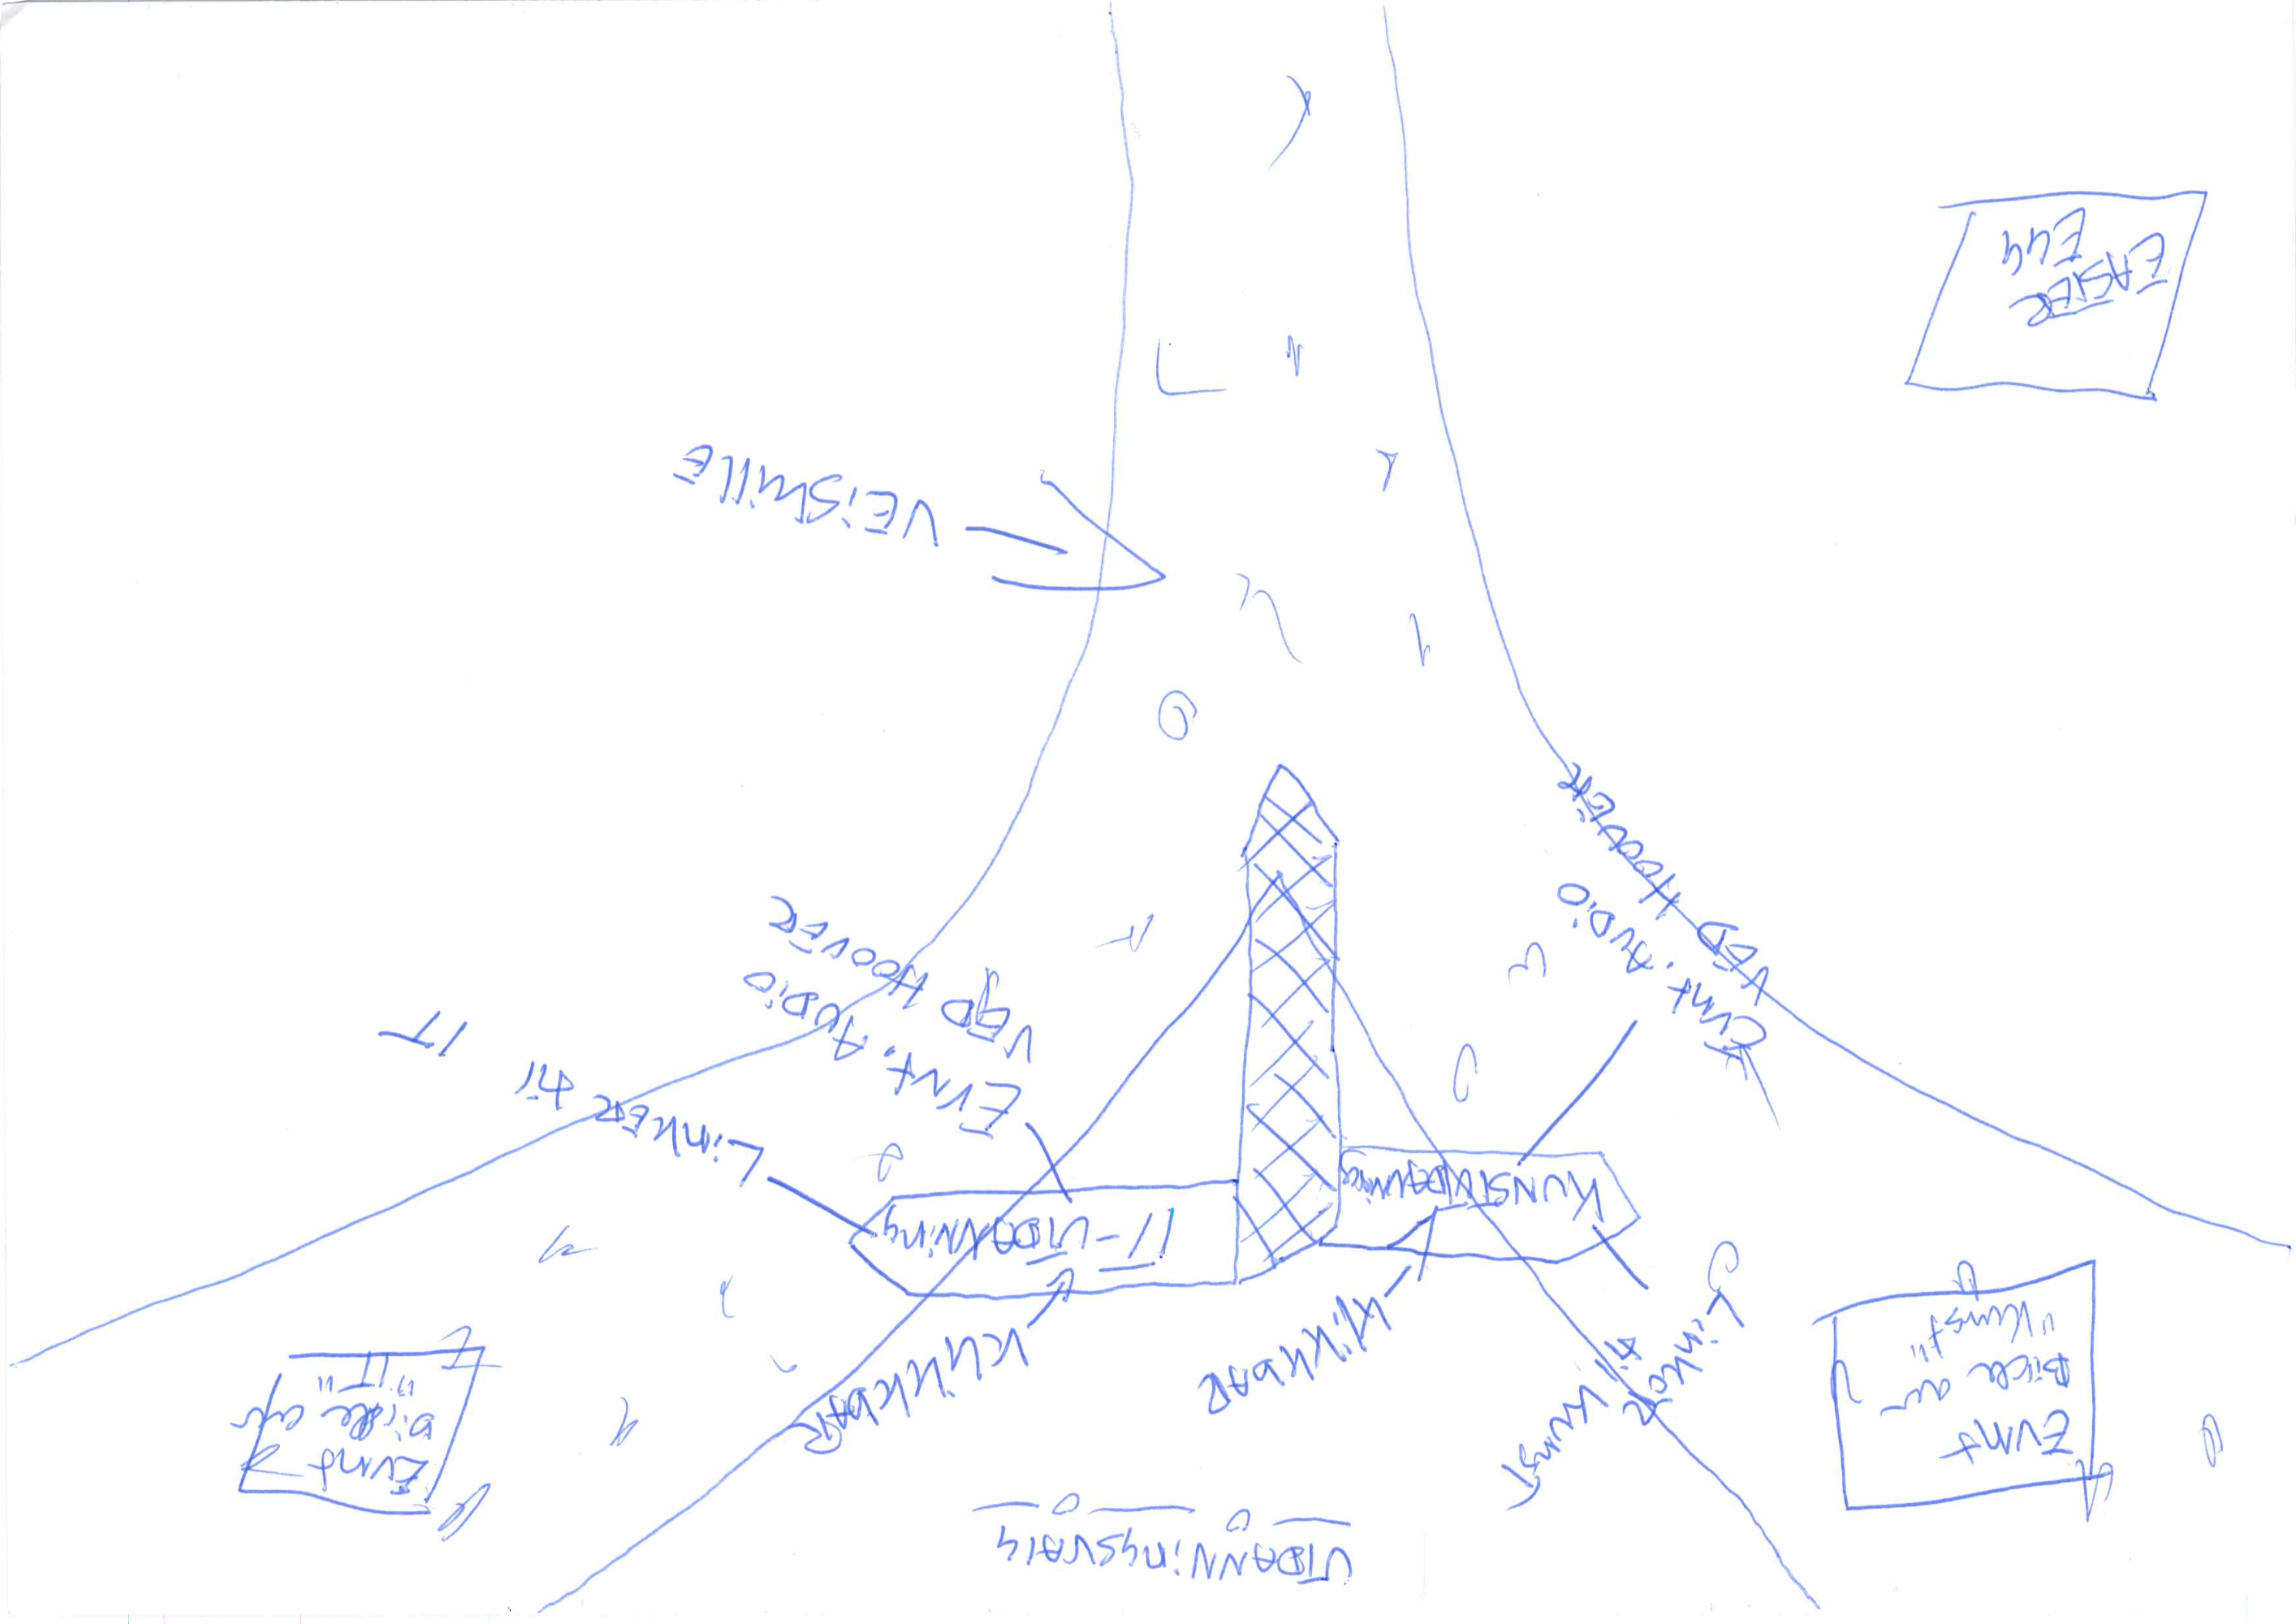 UTDANNINGSVALG
EVNT
Bilde av
"Kunst"
Linker
til kunst
KLIKKBAR
KLIKKBAR
Evnt
bilde av
"IT"
KUNSTUTDANNING
IT-UTDANNING
LINKER til IT
Evnt. AUDIO
VED HOOVER
Evnt. AUDIO
VED HOOVER
VEISKILLE
EASTER
Egg